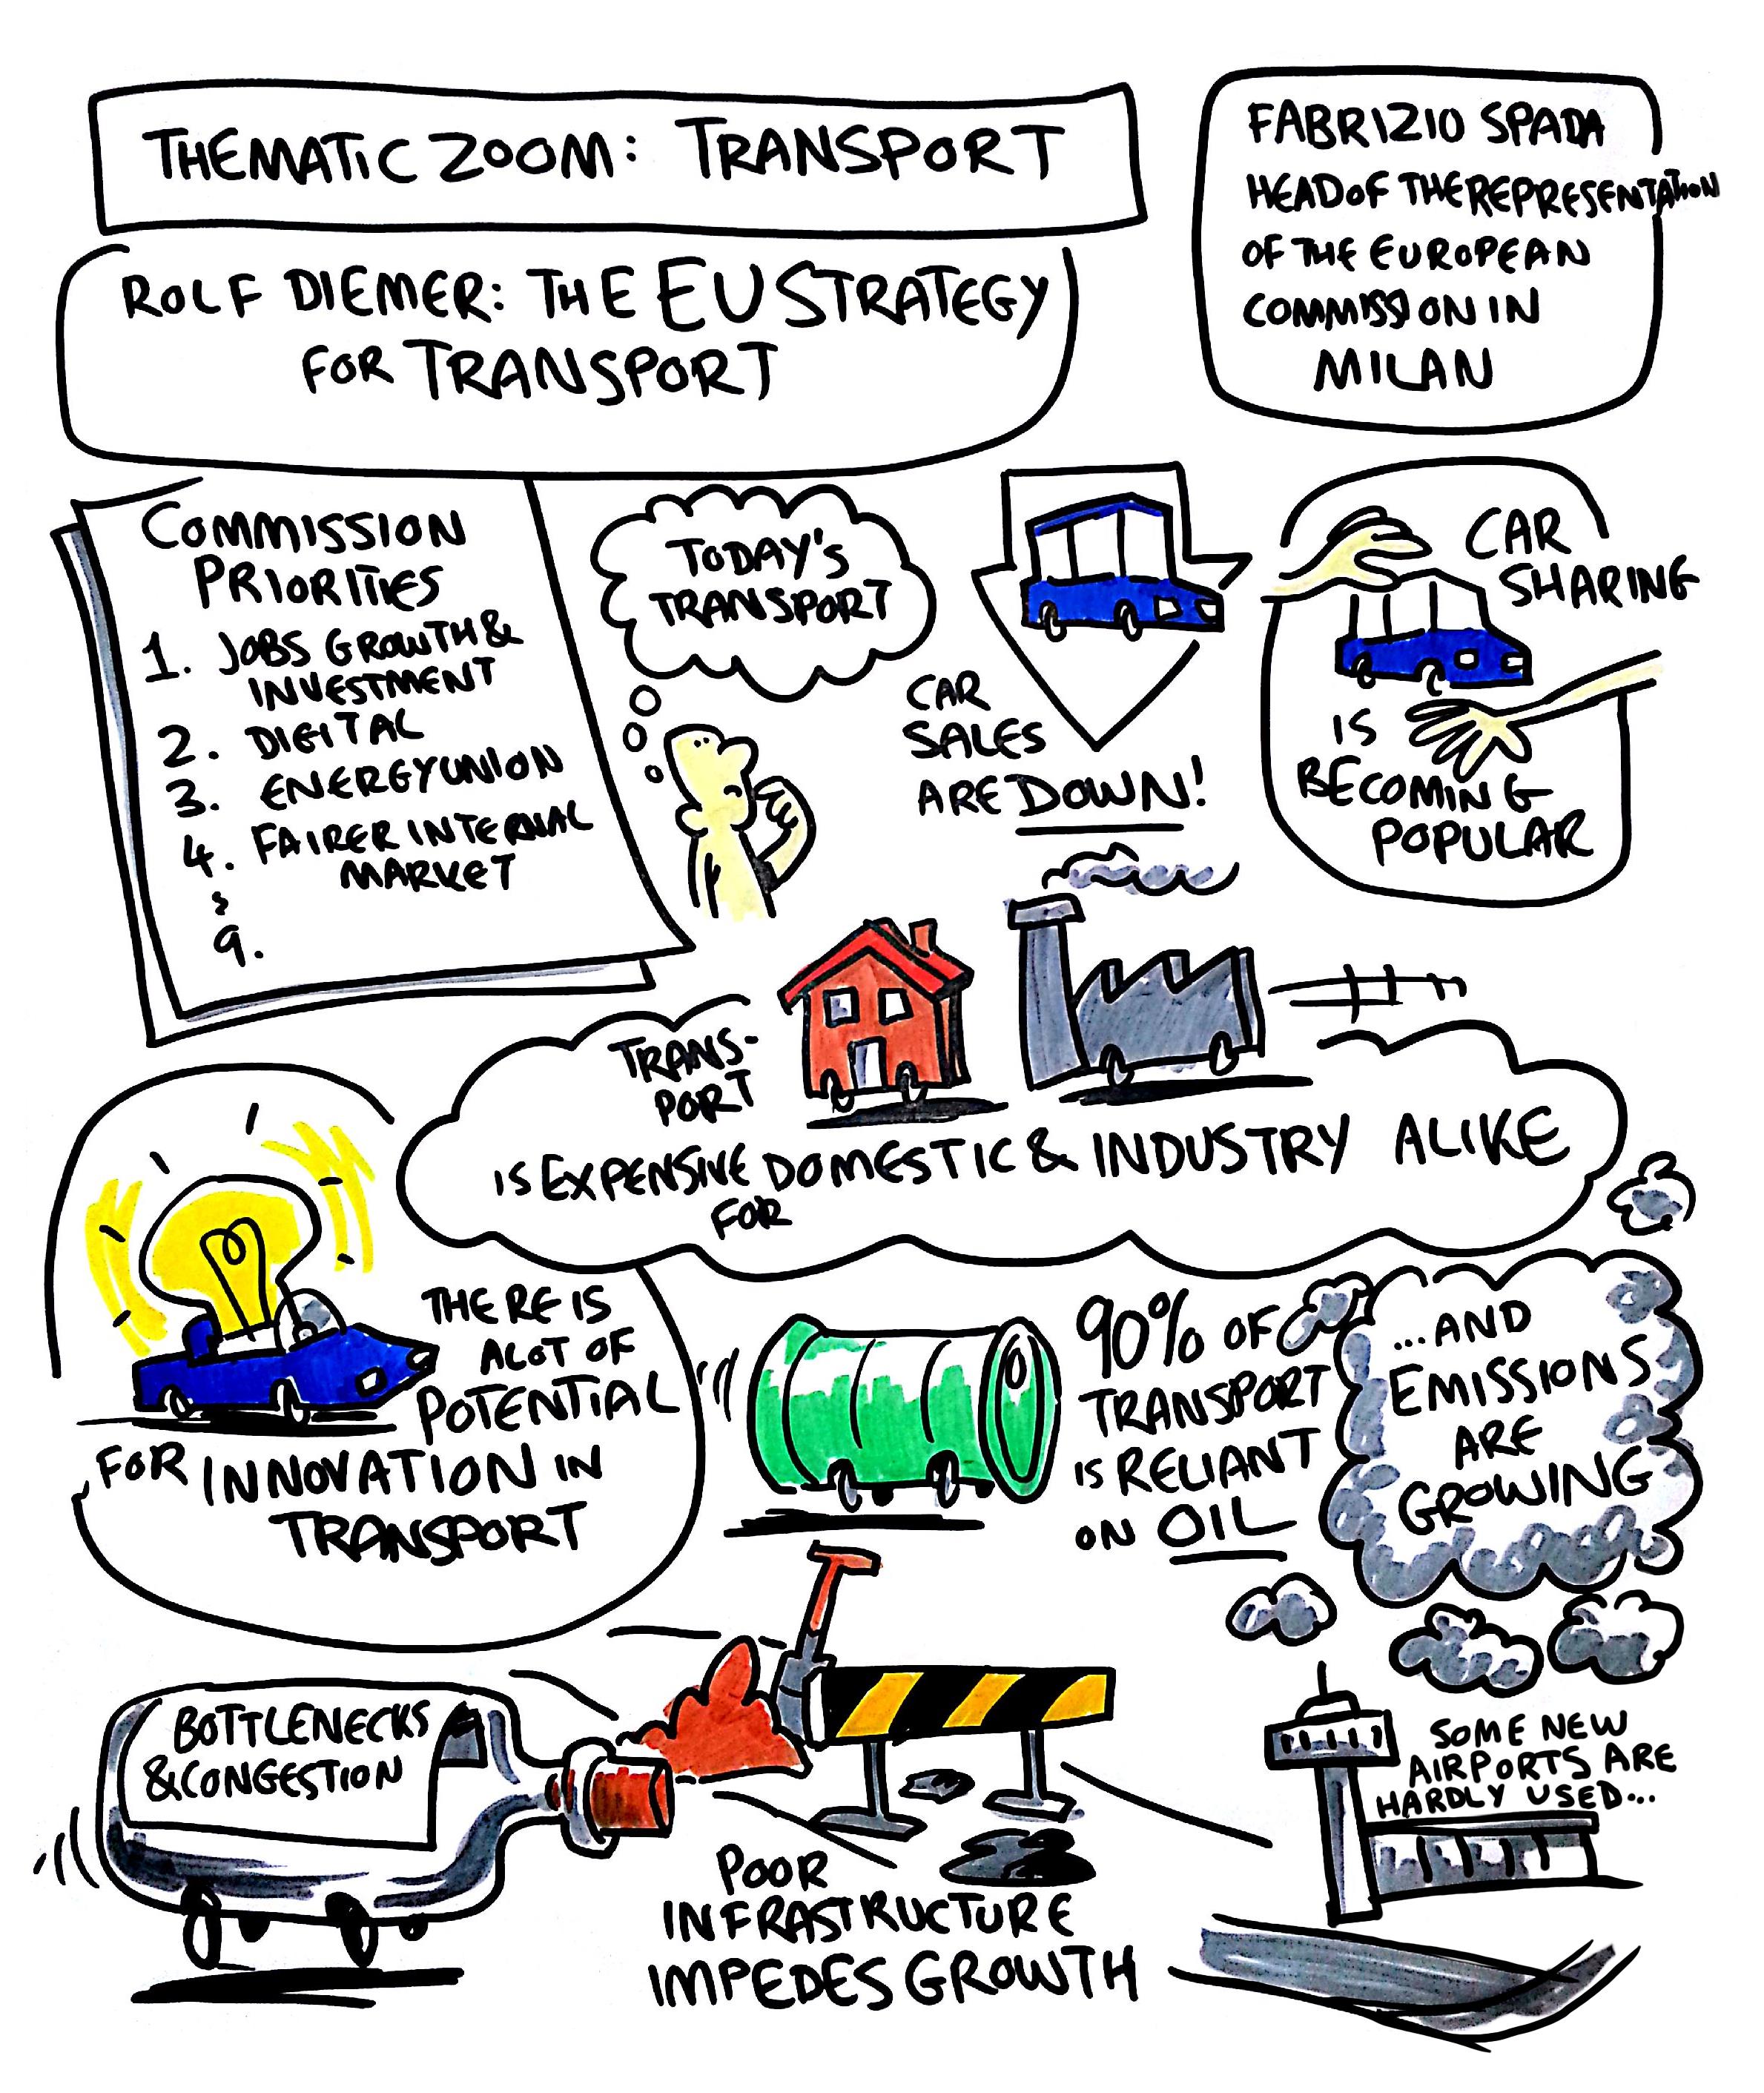 THEMATIC ZOOM: TRANSPORT
ROLF DIEMER: THE EU STRATEGY
FOR TRANSPORT
FABRIZIO SPADA
HEAD OF THE REPRESENTATION
OF THE EUROPEAN
COMMISSION IN
MILAN
COMMISSION
PRIORITIES
1. JOBS GROWTH &
INVESTMENT
2. DIGITAL
3. ENERGY UNION
4. FAIRER INTERNAL
MARKET
9.
TODAY'S
TRANSPORT
CAR
SALES
ARE DOWN!
CAR
SHARING
IS
BECOMING
POPULAR
TRANS-
PORT
IS EXPENSIVE DOMESTIC & INDUSTRY ALIKE
FOR
THERE IS
A LOT OF
POTENTIAL
FOR INNOVATION IN
TRANSPORT
90% OF
TRANSPORT
IS RELIANT
ON OIL
...AND
EMISSIONS
ARE
GROWING
BOTTLENECKS
& CONGESTION
POOR
INFRASTRUCTURE
IMPEDES GROWTH
SOME NEW
AIRPORTS ARE
HARDLY USED...